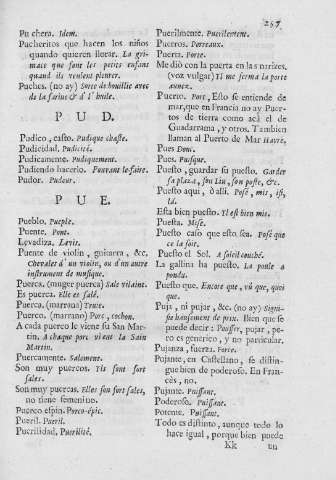 257
Puchera. Idem.
Pucheritos que hacen los niños
quando quieren llorar. La gri-
mace que font les petits enfans
quand ils veulent pleurer.
Puches. (no ay) Sorte de bouillie avec
de la farine & d'l' huile.
P U D.
Pudico, casto. Pudique chaste.
Pudicidad. Pudicité.
Pudicamente. Pudiquement.
Pudiendo hacerlo. Pouvant le faire.
Pudor. Pudeur.
P U E.
Pueblo. Peuple.
Puente. Pont.
Levadiza. Levis.
Puente de violin, guitarra, &c.
Chevalet d'un violin, ou d'un autre
instrument de musique.
Puerca. (muger puerca) Sale vilaine.
Es puerca. Elle es salé.
Puerca. (marrana) Truie.
Puerco. (marrano) Porc, cochon.
A cada puerco le viene su San Mar-
tin. A chaque porc vient la Sain
Martin.
Puercamente. Salement.
Son muy puercos. Ils sont fort
sales.
Son muy puercas. Elles son fort sales,
no tiene femenino.
Puerco espin. Porco-épic.
Pueril. Pueril.
Puerilidad. Puerilité.
Puerilmente. Puerilement.
Puerros. Porreaux.
Puerta. Porte.
Me dió con la puerta en las narizes,
(voz vulgar) Il me ferma la porte
aunez.
Puerto. Port, Esto se entiende de
mar, que en Francia no ay Puer-
tos de tierra como acá el de
Guadarrama, y otros. Tambien
llaman al Puerto de Mar Havre,
Pues Donc.
Pues. Puisque.
Puesto, guardar su puesto. Garder
sa plaza, son Lieu, son poste, &c.
Puesto aqui, ò alli. Posé, mis, isi,
lá.
Esta bien puesto. Il est bien mis.
Puesta. Mise.
Puesto caso que esto sea. Posé que
ce la soit.
Puesto el Sol. A soleil couché.
La gallina ha puesto. La poule a
pondu.
Puesto que. Encore que, vû que, quoi
que.
Puja, ni pujar, &c. (no ay) Signi-
fie haussement de prix. Bien que se
puede decir: Pousser, pujar, pe-
ro es generico, y no particular.
Pujanza, fuerza. Force.
Pujante, en Castellano, se distin-
gue bien de poderoso. En Fran-
cés, no.
Pujante. Puissant.
Poderoso. Puissant.
Potente. Puissant.
Todo es distinto, aunque todo lo
hace igual, porque bien puede
Kk un